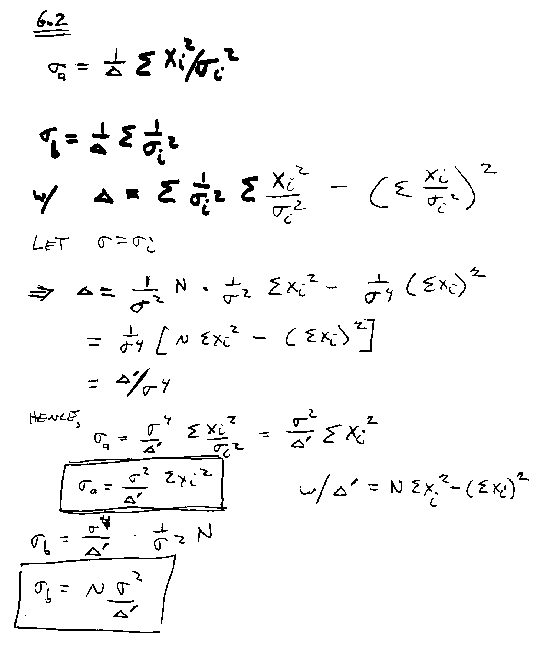 6.2
σₐ = 1/Δ Σ Xᵢ²/σᵢ²
σ_b = 1/Δ Σ 1/σᵢ²
w/ Δ = Σ 1/σᵢ² Σ Xᵢ²/σᵢ² − (Σ Xᵢ/σᵢ²)²
LET σ=σᵢ
⇒ Δ = 1/σ² N · 1/σ² ΣXᵢ² − 1/σ⁴ (ΣXᵢ)²
= 1/σ⁴ [N ΣXᵢ² − (ΣXᵢ)²]
= Δ′/σ⁴
HENCE, σₐ = σ⁴/Δ′ Σ Xᵢ²/σᵢ² = σ²/Δ′ Σ Xᵢ²
σₐ = σ²/Δ′ ΣXᵢ² w/ Δ′ = N ΣXᵢ² − (ΣXᵢ)²
σ_b = σ⁴/Δ′ · 1/σ² N
σ_b = N σ²/Δ′